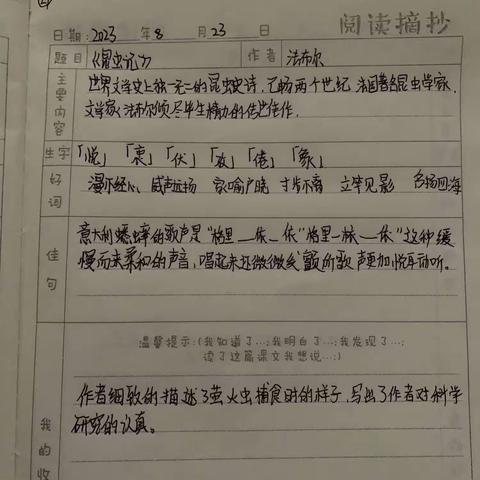 阅读摘抄
日期:2023年8月23日
题目《昆虫记》作者 法布尔
主要内容
世界文学史上独一无二的昆虫史诗,已畅两个世纪 法国著名昆虫学家,
文学家、法布尔倾尽毕生精力的传世佳作。
生字「悦」「衷」「伏」「夜」「倦」「象」
好词 漫不经心、威声远扬 家喻户晓 寸步不离 立竿见影 名扬四海
佳句
意大利蟋蟀的歌声是“格里—依—依”格里—依—依”这种缓
慢而来柔和的声音,唱起来还微微颤所歌声更加悦耳动听。
温馨提示:(我知道了…;我明白了…;我发现了…;
读了这篇课文我想说…;)
我的收
作者细致的描述了萤火虫捕食时的样子,写出了作者对科学
研究的认真。